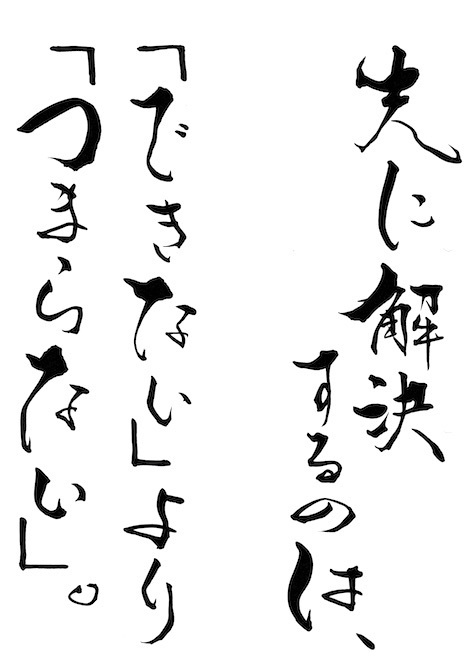 先に解決
するのは、
「できない」より
「つまらない」。